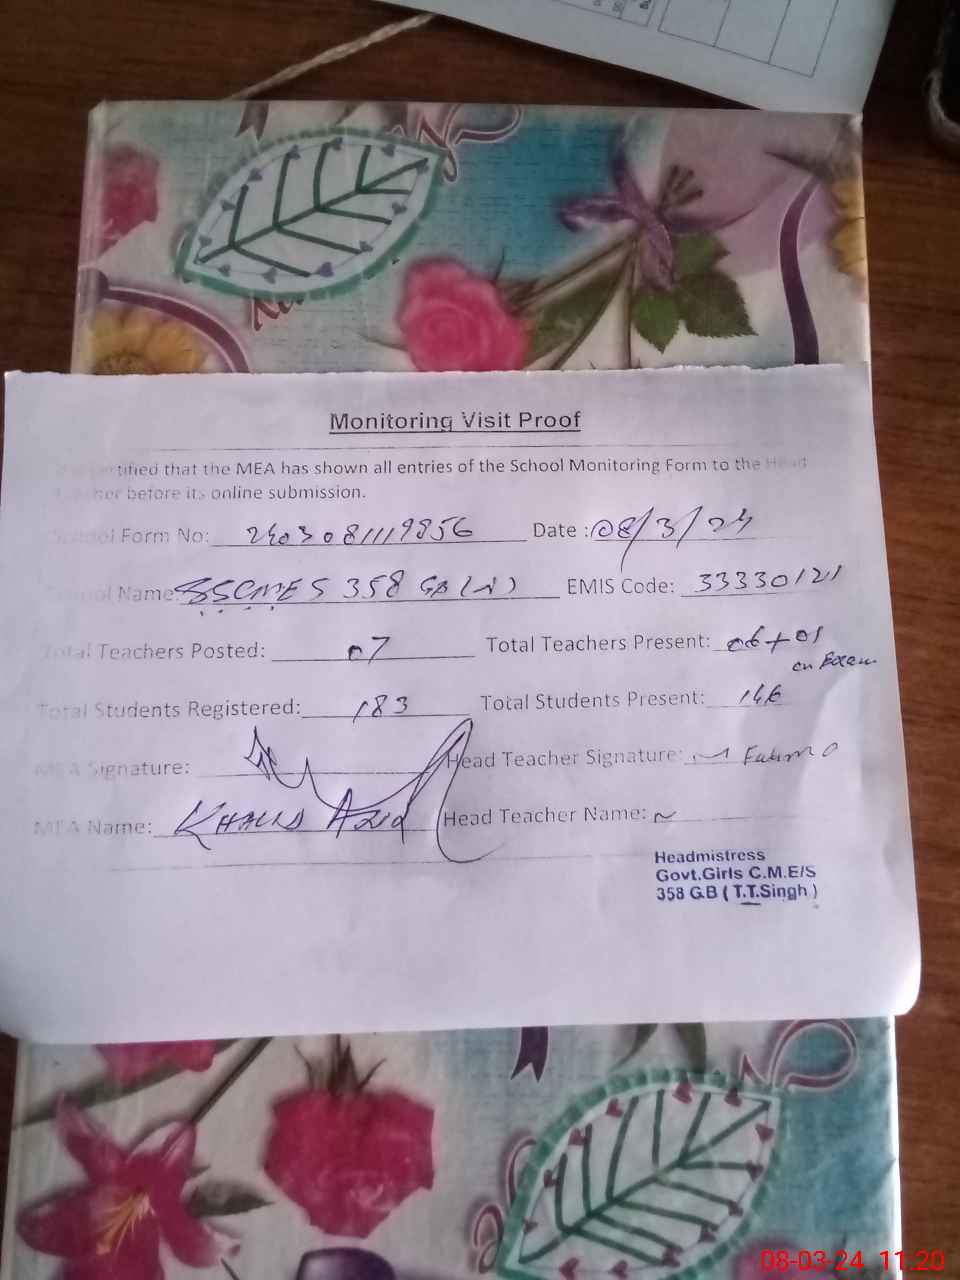 Monitoring Visit Proof
tified that the MEA has shown all entries of the School Monitoring Form to the Head
before its online submission.
School Form No: 2403081119856 Date : 08/3/24
School Name: 358 GB (W) EMIS Code: 33330121
Total Teachers Posted: 07 Total Teachers Present: 06+01
on Exam
Total Students Registered: 183 Total Students Present: 146
MEA Signature: Head Teacher Signature: Fatima
MEA Name: KHALID Head Teacher Name:
Headmistress
Govt.Girls C.M.E/S
358 G.B ( T.T.Singh )
08-03-24 11:20